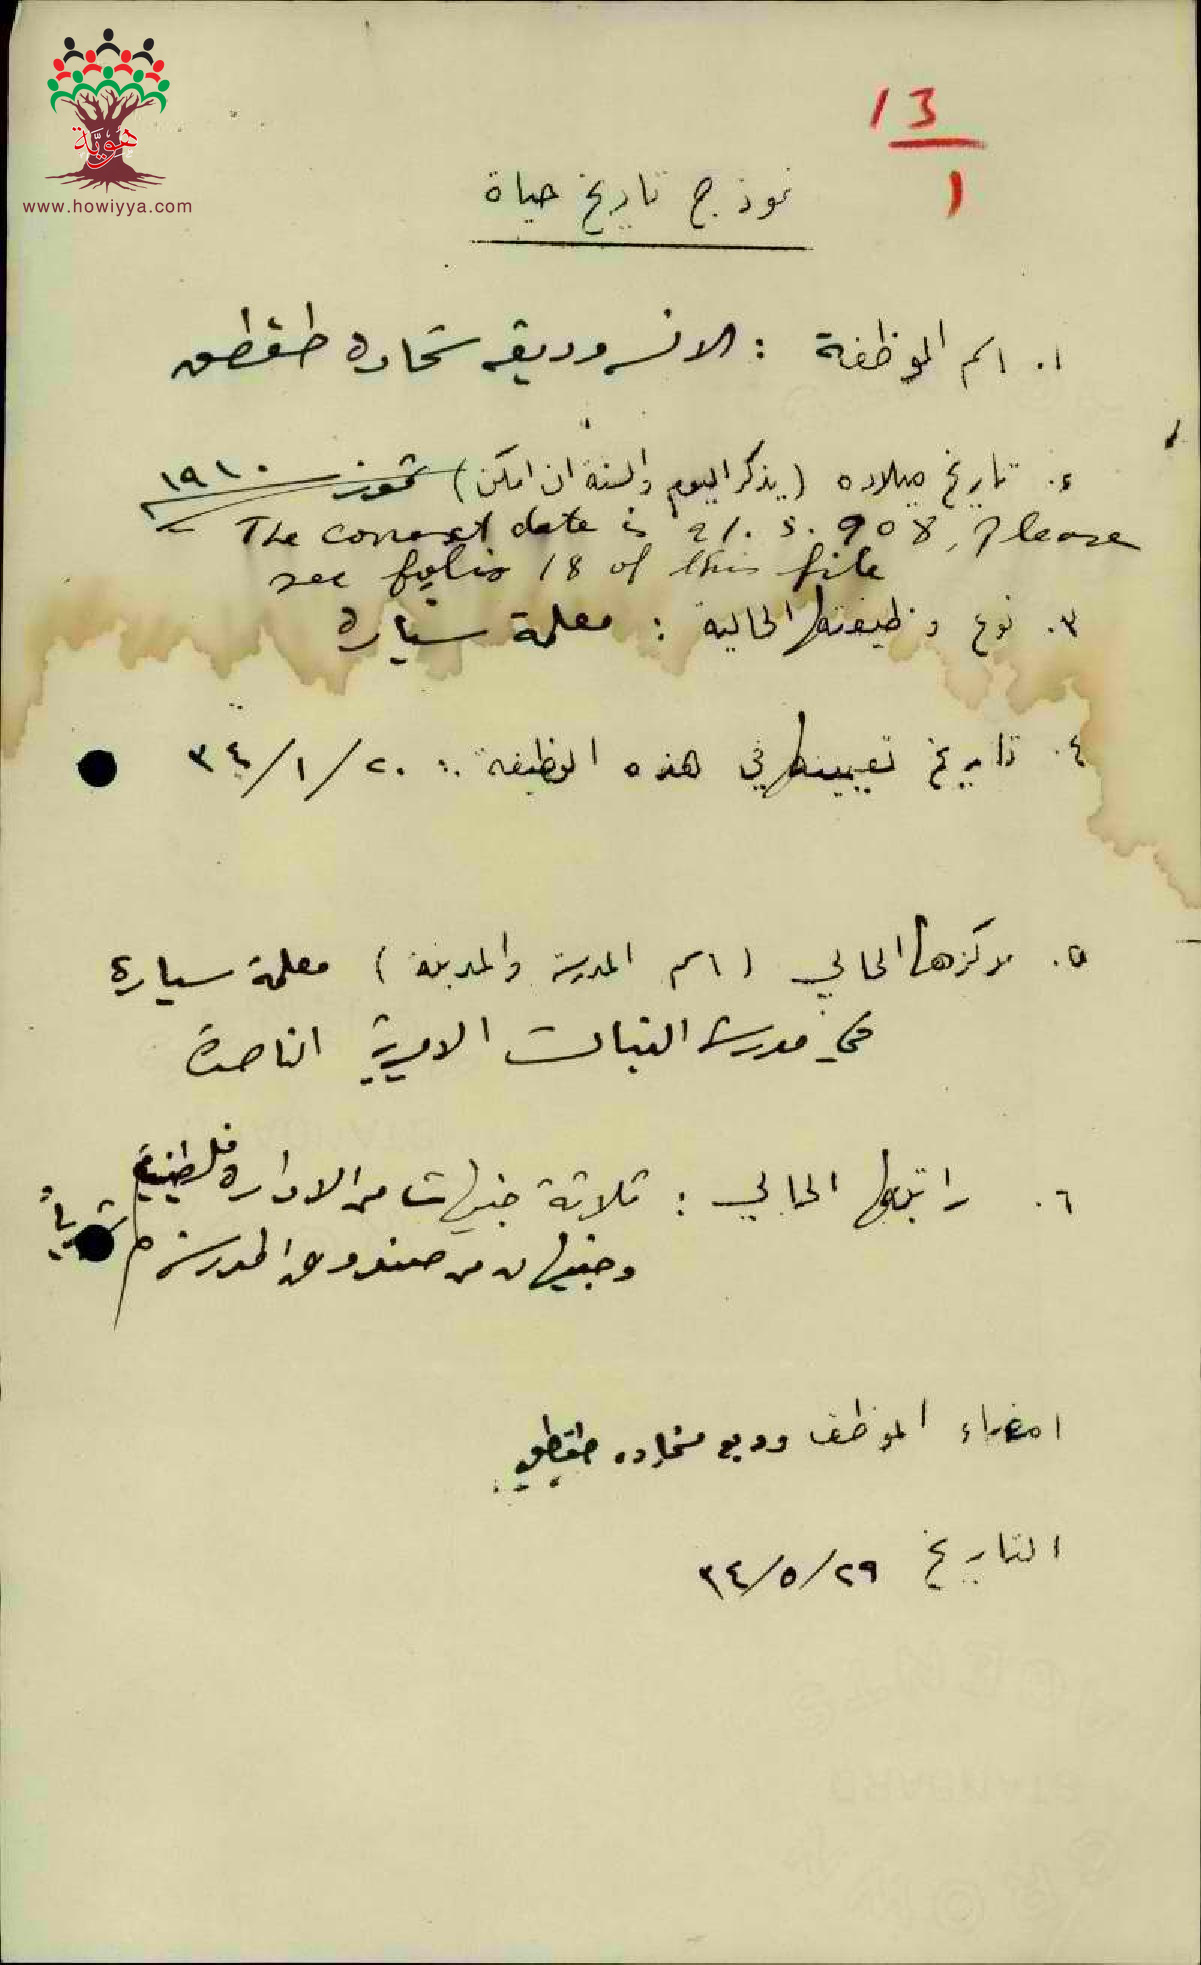 هوية
www.howiyya.com
13
1
نموذج تاريخ حياة
١. اسم الموظفة : الانسه وديعه شحاده طقطق
٢. تاريخ ميلاده (يذكر اليوم والسنة ان امكن) تموز ١٩١٠
The correct date is 21.3.908, Please
see folio 18 of this file
٣. نوع وظيفتها الحالية : معلمة سياره
٤. تاريخ تعيينها في هذه الوظيفة : ٢٠/١/٣٤
٥. مركزها الحالي (اسم المدرسة والمدينة) معلمة سياره
في مدرسة البنات الاميرية الناصرة
٦. راتبها الحالي : ثلاثة جنيهات من الاداره فلسطينية
وجنيهان من صندوق المدرسة شهرياً
امضاء الموظف وديعه شحاده طقطق
التاريخ ٢٩/٥/٣٤